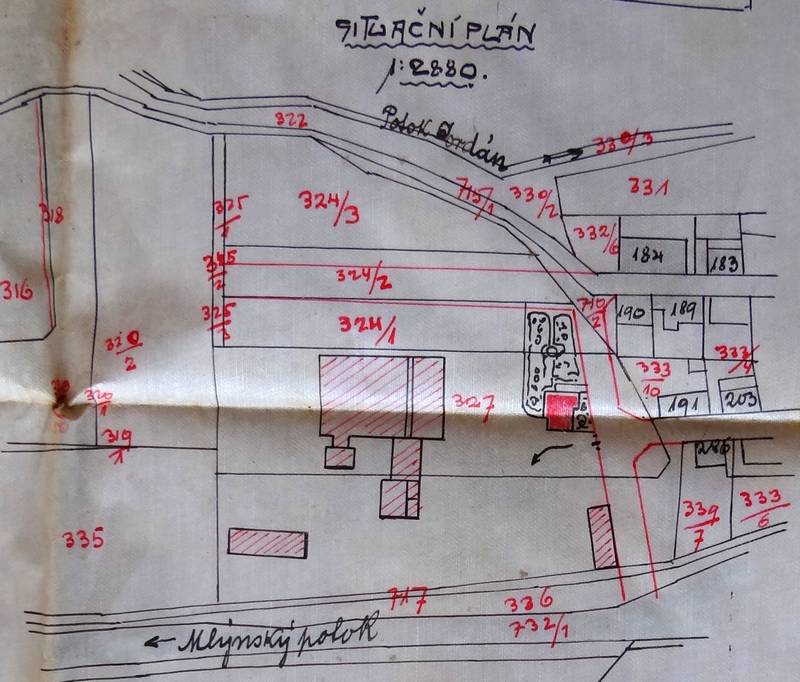 SITUAČNÍ PLÁN
1:2880.
322
Potok Jordán
330/3
318
325/1
324/3
715/1
330/2
331
332/6
184
183
316
325/2
324/2
710/2
190
189
325/3
324/1
320/2
333/10
333/4
320/1
327
191
203
319/1
286
335
339/7
333/6
717
336
732/1
← Mlýnský potok